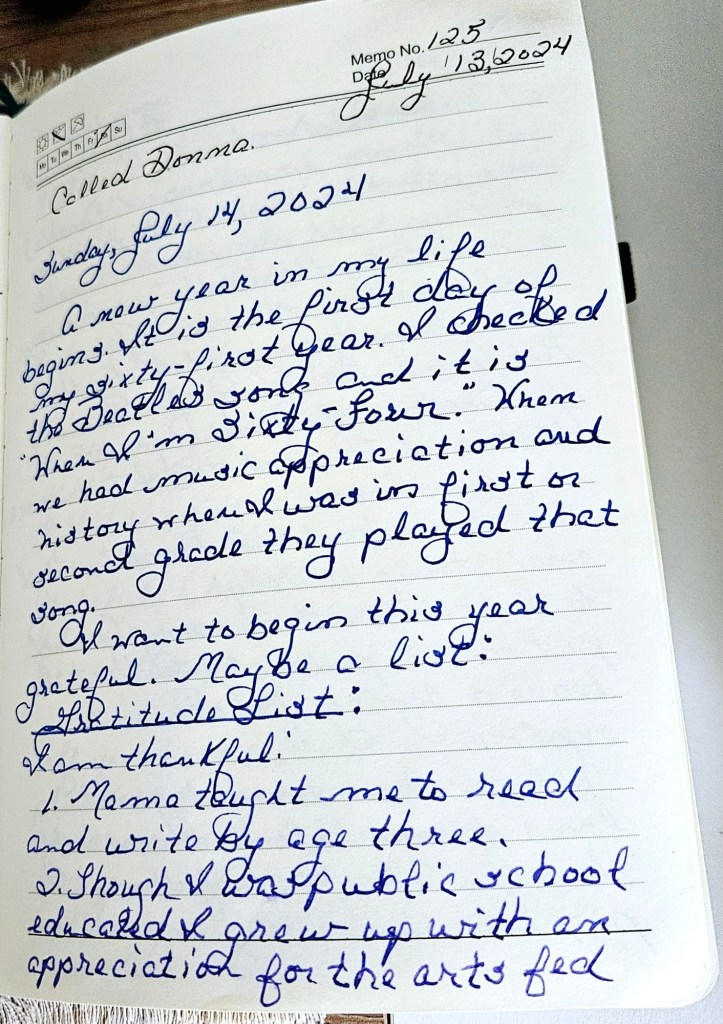 Memo No. 125
Date July 13, 2024
Mo Tu We Th Fr Sa Su
Called Donna.
Sunday, July 14, 2024
A new year in my life
begins. It is the first day of
my sixty-first year. I checked
the Beatles song and it is
"When I'm Sixty-Four." When
we had music appreciation and
history when I was in first or
second grade they played that
song.
I want to begin this year
grateful. Maybe a list:
Gratitude List:
I am thankful:
1. Mama taught me to read
and write by age three.
2. Though I was public school
educated I grew up with an
appreciation for the arts fed